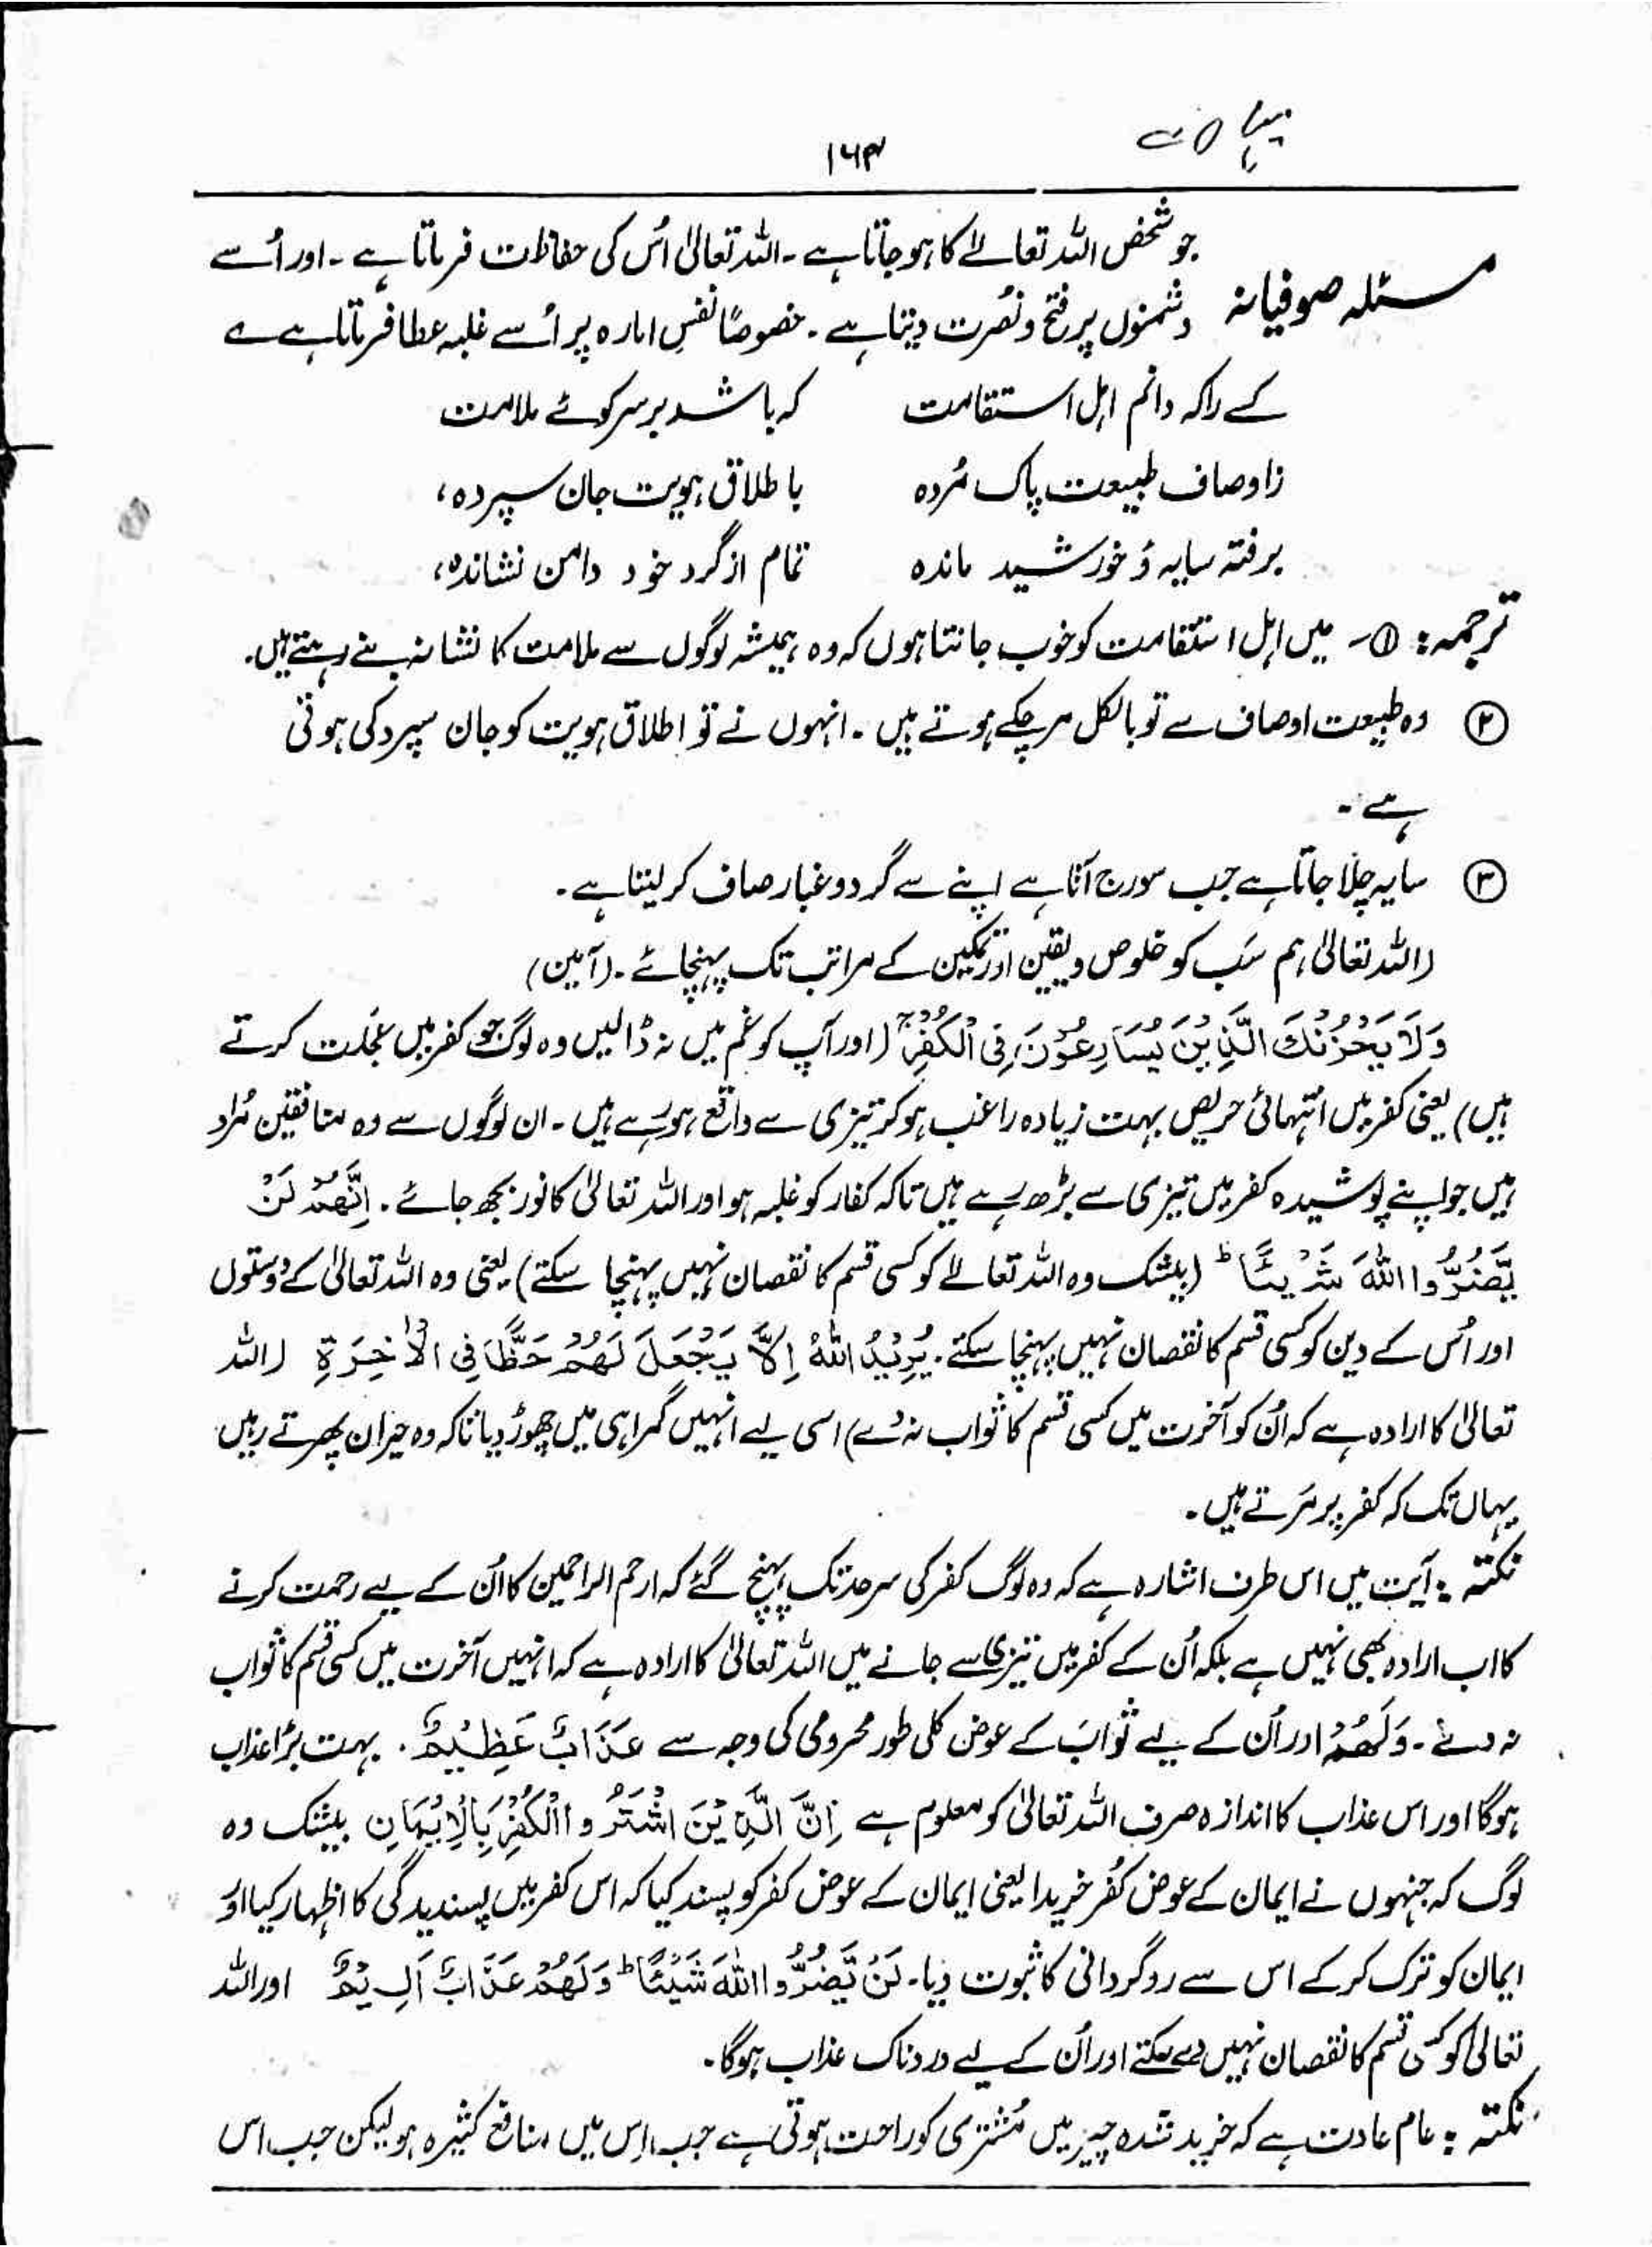 ۱۶۴
مسئلہ صوفیانہ جو شخص اللہ تعالےٰ کا ہو جاتا ہے ۔ اللہ تعالیٰ اُس کی حفاظت فرماتا ہے ۔ اور اُسے
دشمنوں پر فتح و نُصرت دیتا ہے ۔ خصوصًا نفسِ امارہ پر اُسے غلبہ عطا فرماتا ہے ؎
کسے راکہ دانم اہل استقامت کہ باشد بر سر کوئے ملامت
زاوصاف طبیعت پاک مُردہ باطلاق ہویت جان سپردہ،
برفتہ سایہ وُ خورشید ماندہ تمام از گرد خود دامن نشاندہ،
ترجمہ: ①۔ میں اہل استقامت کو خوب جانتا ہوں کہ وہ ہمیشہ لوگوں سے ملامت کا نشانہ بنے رہتے ہیں.
② وہ طبیعت اوصاف سے تو بالکل مر چکے ہوتے ہیں ۔ انہوں نے تو اطلاق ہویت کو جان سپرد کی ہوتی
ہے ۔
③ سایہ چلا جاتا ہے جب سورج آتا ہے اپنے سے گرد و غبار صاف کر لیتا ہے ۔
(اللہ تعالیٰ ہم سَب کو خلوص و یقین اور تمکین کے مراتب تک پہنچائے ۔ (آمین)
وَلَا يَحْزُنْكَ الَّذِيْنَ يُسَارِعُوْنَ فِى الْكُفْرِ ۚ (اور آپ کو غم میں نہ ڈالیں وہ لوگ جو کفر میں عُجلت کرتے
ہیں) یعنی کفر میں انتہائی حریص بہت زیادہ راغب ہو کر تیزی سے واقع ہو رہے ہیں ۔ ان لوگوں سے وہ منافقین مُراد
ہیں جو اپنے پوشیدہ کفر میں تیزی سے بڑھ رہے ہیں تاکہ کفار کو غلبہ ہو اور اللہ تعالیٰ کا نور بجھ جائے ۔ اِنَّهُمْ لَنْ
يَّضُرُّوا اللهَ شَيْـئًا ؕ (بیشک وہ اللہ تعالےٰ کو کسی قسم کا نقصان نہیں پہنچا سکتے) یعنی وہ اللہ تعالیٰ کے دوستوں
اور اُس کے دین کو کسی قسم کا نقصان نہیں پہنچا سکتے ۔ يُرِيْدُ اللهُ اِلَّا يَجْعَلَ لَهُمْ حَظًّا فِى الْاٰخِرَةِ (اللہ
تعالیٰ کا ارادہ ہے کہ اُن کو آخرت میں کسی قسم کا ثواب نہ دے) اسی لیے انہیں گمراہی میں چھوڑ دیا تاکہ وہ حیران پھرتے رہیں
یہاں تک کہ کفر پر مَرتے ہیں ۔
نکتہ : آیت میں اس طرف اشارہ ہے کہ وہ لوگ کفر کی سرحد تک پہنچ گئے کہ ارحم الراحمین کا اُن کے لیے رحمت کرنے
کا اب ارادہ بھی نہیں ہے بلکہ اُن کے کفر میں تیزی سے جانے میں اللہ تعالیٰ کا ارادہ ہے کہ انہیں آخرت میں کسی قسم کا ثواب
نہ دے ۔ وَلَهُمْ اور اُن کے لیے ثواب کے عوض کلی طور محرومی کی وجہ سے عَذَابٌ عَظِيْمٌ ۔ بہت بڑا عذاب
ہوگا اور اس عذاب کا اندازہ صرف اللہ تعالیٰ کو معلوم ہے اِنَّ الَّذِيْنَ اشْتَرُوا الْكُفْرَ بِالْاِيْمَانِ بیشک وہ
لوگ کہ جنہوں نے ایمان کے عوض کُفر خریدا یعنی ایمان کے عوض کفر کو پسند کیا کہ اس کفر میں پسندیدگی کا اظہار کیا اور
ایمان کو ترک کر کے اس سے روگردانی کا ثبوت دیا ۔ لَنْ يَّضُرُّوا اللهَ شَيْئًا ؕ وَلَهُمْ عَذَابٌ اَلِيْمٌ اور اللہ
تعالیٰ کو کسی قسم کا نقصان نہیں دے سکتے اور اُن کے لیے دردناک عذاب ہوگا ۔
نکتہ : عام عادت ہے کہ خرید شدہ چیز میں مُشتری کو راحت ہوتی ہے جب اِس میں منافع کثیرہ ہو لیکن جب اس